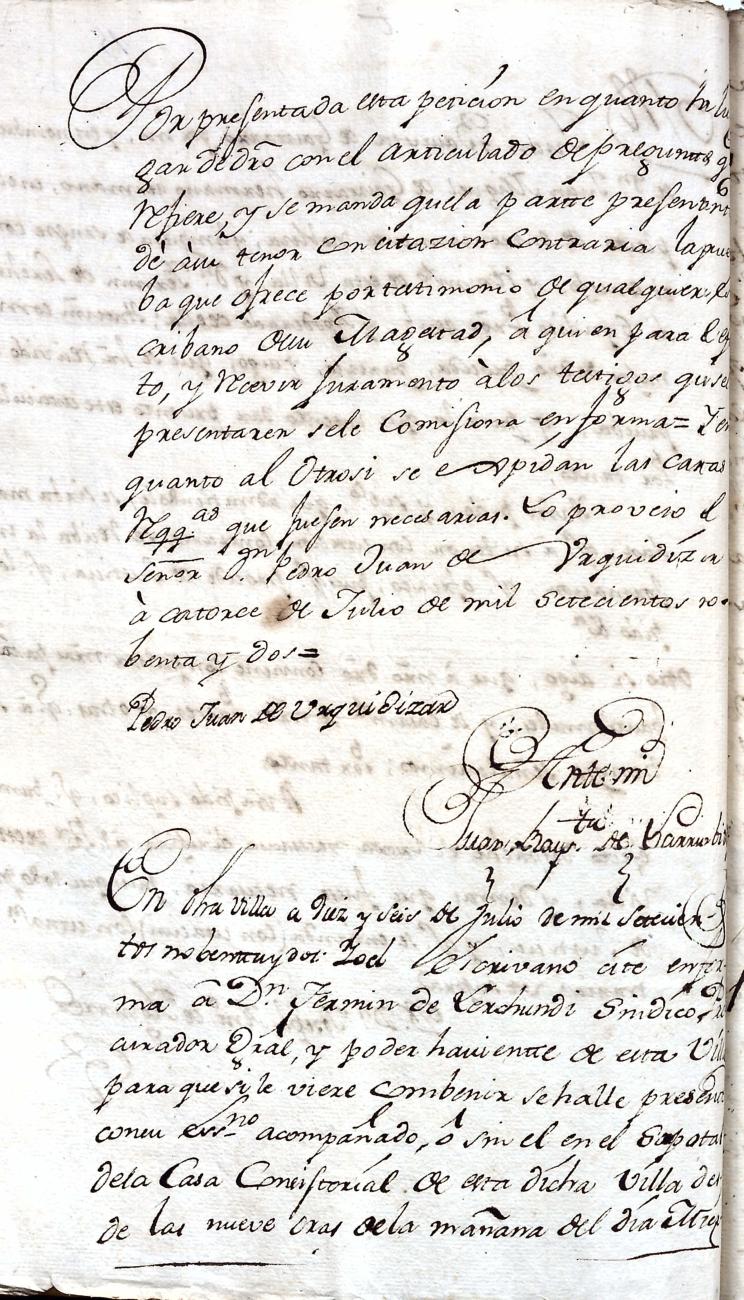 Por presentada esta peticion en quanto ha lu
gar de dro con el articulado de preguntas q
refiere, y se manda que la partte presentant
dè àsu tenor con citazion contraria la prue
ba que ofrece por testimonio de qualquier es
cribano desu Magestad, â quien para l efe
to, y recevir Juramento àlos testigos que se
presentaren sele Comisiona en forma = Y en
quanto al Otrosi se expidan las cartas
Rqq.ad que fuesen necesarias. Lo proveio el
señor D.n Pedro Juan de Urquidizar
à catorce de Julio de mil setecientos no
benta y dos =
Pedro Juan de Urquidizar
Antemi
Juan Bap.ta de
En dha villa a diez y seis de Julio de mil setecien
tos nobenta y dos: Yo el Escrivano cite en for
ma â D.n Fermin de Lerchundi Sindico, Pro
curador Gral, y poder havientte de esta Villa
para que si le viere combenir se halle presente
con su ess.no acompañado, ô sin el en el Sapotal
dela Casa Consistorial de esta dicha Villa des
de las nueve oras dela mañana del dia Mier